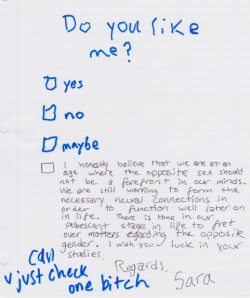 Do you like
me?
yes
no
maybe
I honestly believe that we are at an
age where the opposite sex should
not be a forefront in our minds.
We are still working to form the
necessary neural connections in
order to function well later on
in life. There is time in our
pubescent stage in life to fret
over matters regarding the opposite
gender. I wish you luck in your
studies.
Regards,
Sara
just check
one bitch